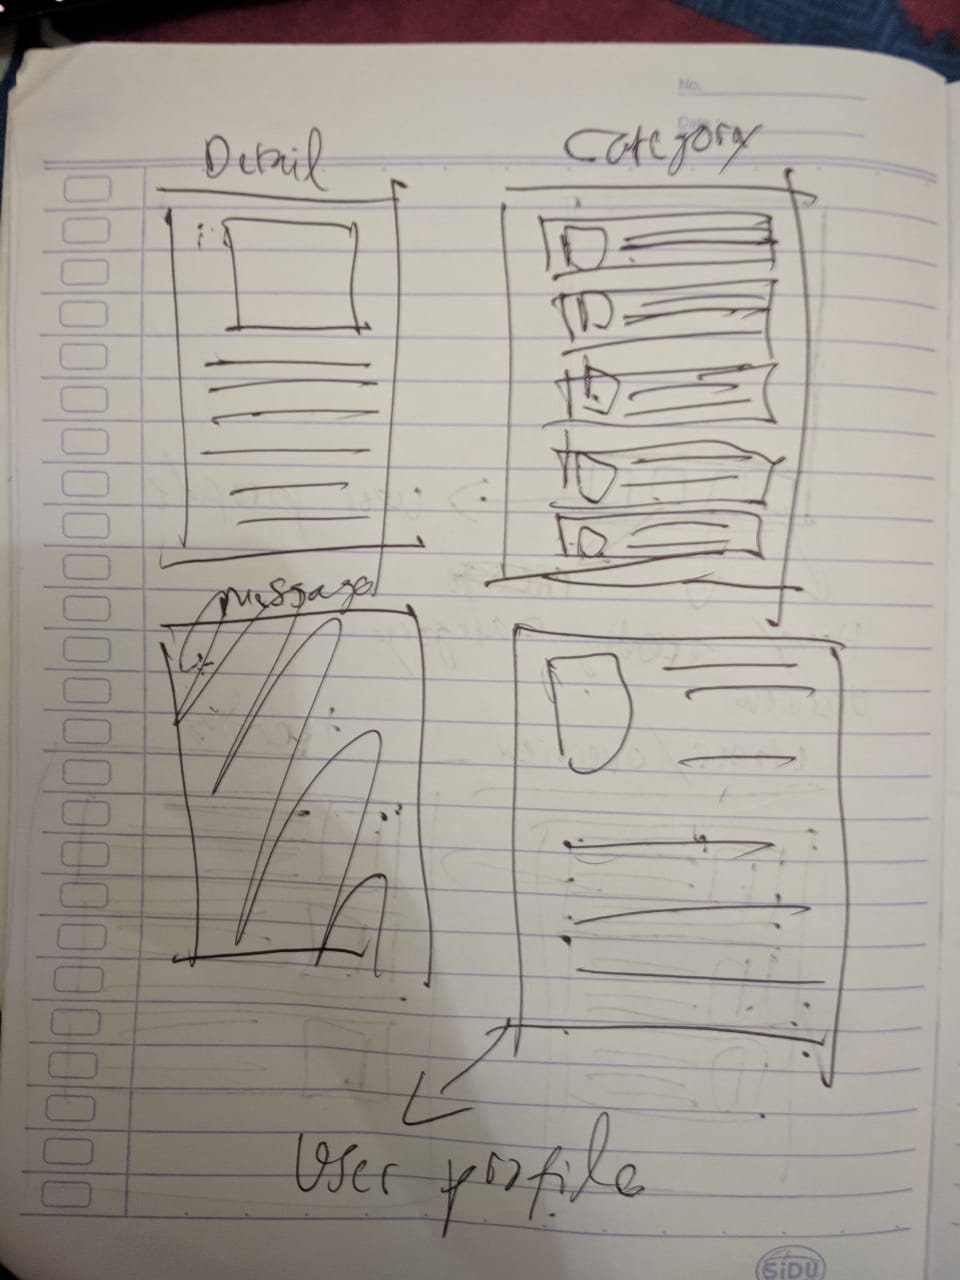 No.
Date
Detail
Category
Message
User profile
SiDU